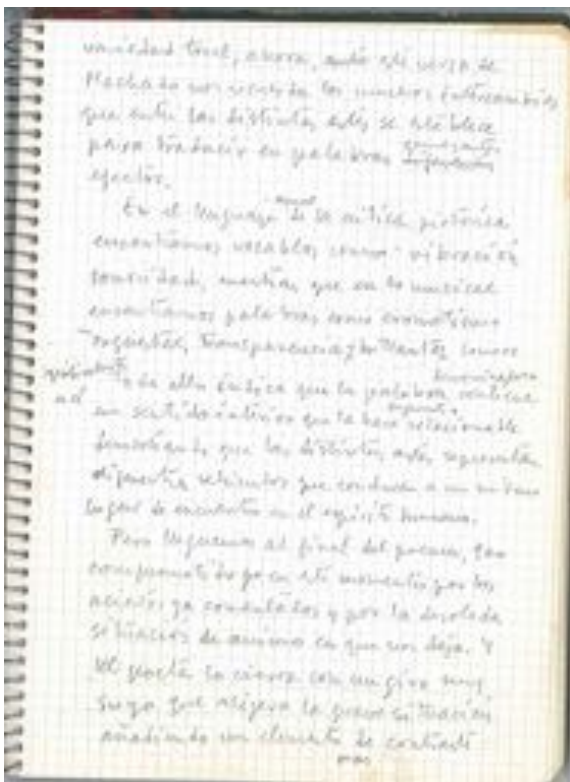 variedad tonal, ahora, ante este verso de
Machado nos recuerda los muchos intercambios
que entre las distintas artes se establece
para traducir en palabras
efectos.
En el lenguaje de la crítica pictórica
encontramos vocablos como vibración
sonoridad, mientras que en la musical
encontramos palabras como cromatismo
orquestal, transparencia, brillantez sonora
ello indica que la palabra contiene
un sentido que la hace relacionable
que las distintas artes representan
diferentes vehículos que conducen a un mismo
lugar de encuentro en el espíritu humano.
Pero lleguemos al final del poema, tan
ya en este momento por los
aciertos ya comentados y por la desolada
situación de ánimo en que nos deja. Y
el poeta lo cierra con un giro muy
suyo que aligera la grave situación
añadiendo un elemento de contraste
mas